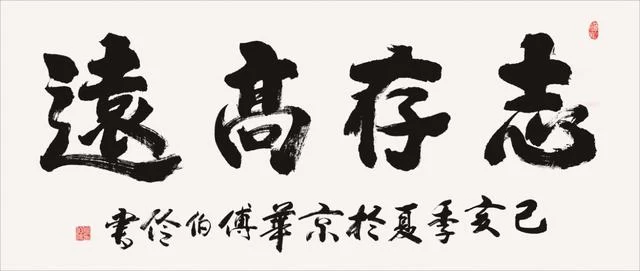 志存髙遠
己亥季夏於京華傅伯伶書